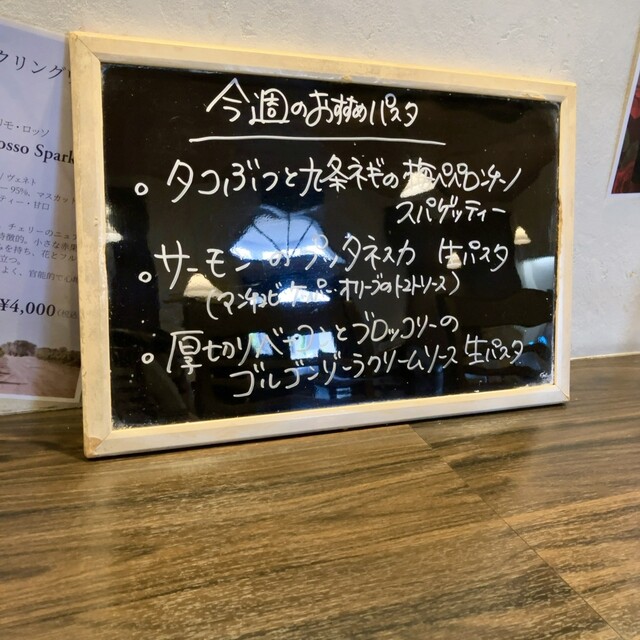 今週のおすすめパスタ
。タコぶつと九条ネギの梅ペペロンチーノ
スパゲッティー
。サーモンのプッタネスカ 生パスタ
(アンチョビ・ケッパー・オリーブのトマトソース)
。厚切りベーコンとブロッコリーの
ゴルゴンゾーラクリームソース 生パスタ
クリング
モ・ロッソ
osso Spark
ノ ヴェネト
95%, マスカット
ティー・甘口
チェリーのニュ
特徴的。小さな赤果
を持ち、花とソル
立つ。
よく、官能的で心
¥4,000